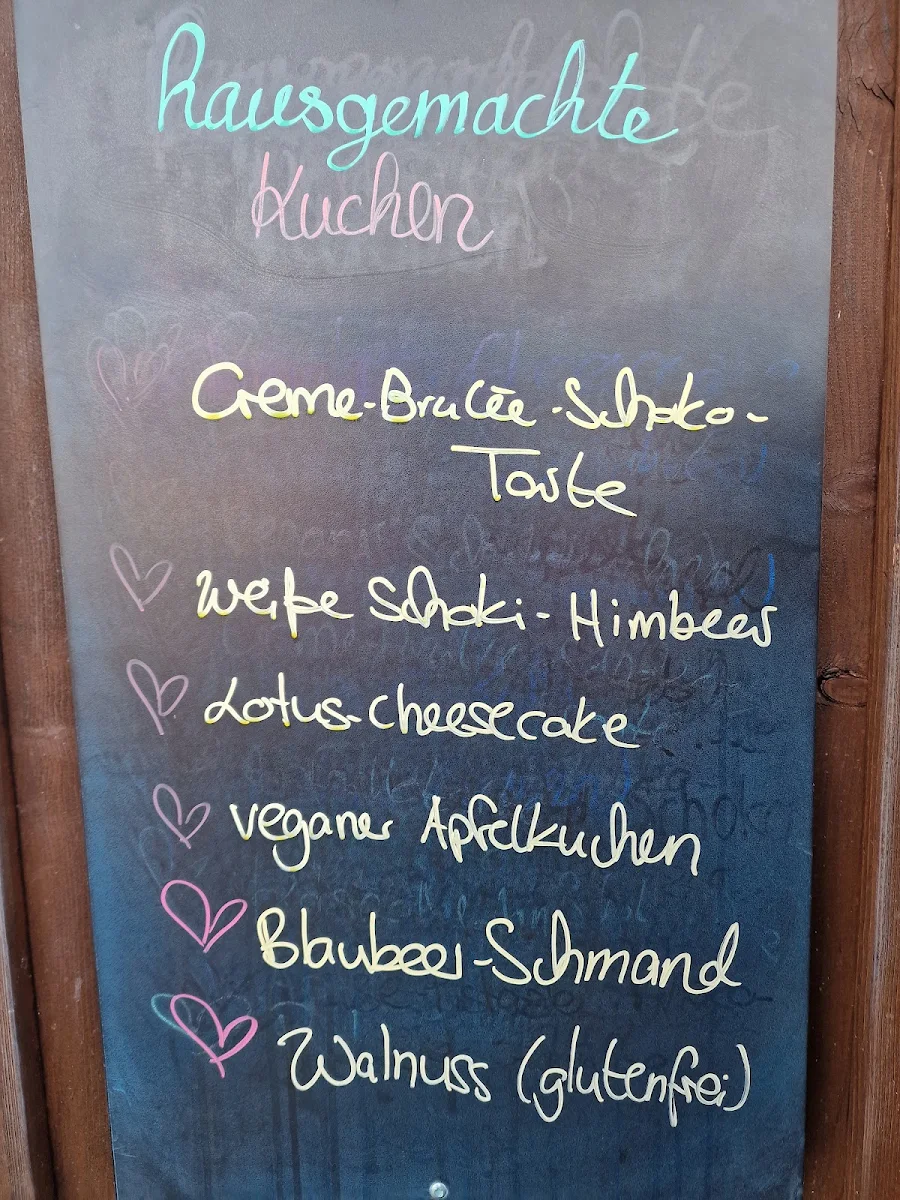 hausgemachte
Kuchen
Creme-Brulée-Schoko-
Torte
weiße Schoki-Himbeer
Lotus-Cheesecake
veganer Apfelkuchen
Blaubeer-Schmand
Walnuss (glutenfrei)